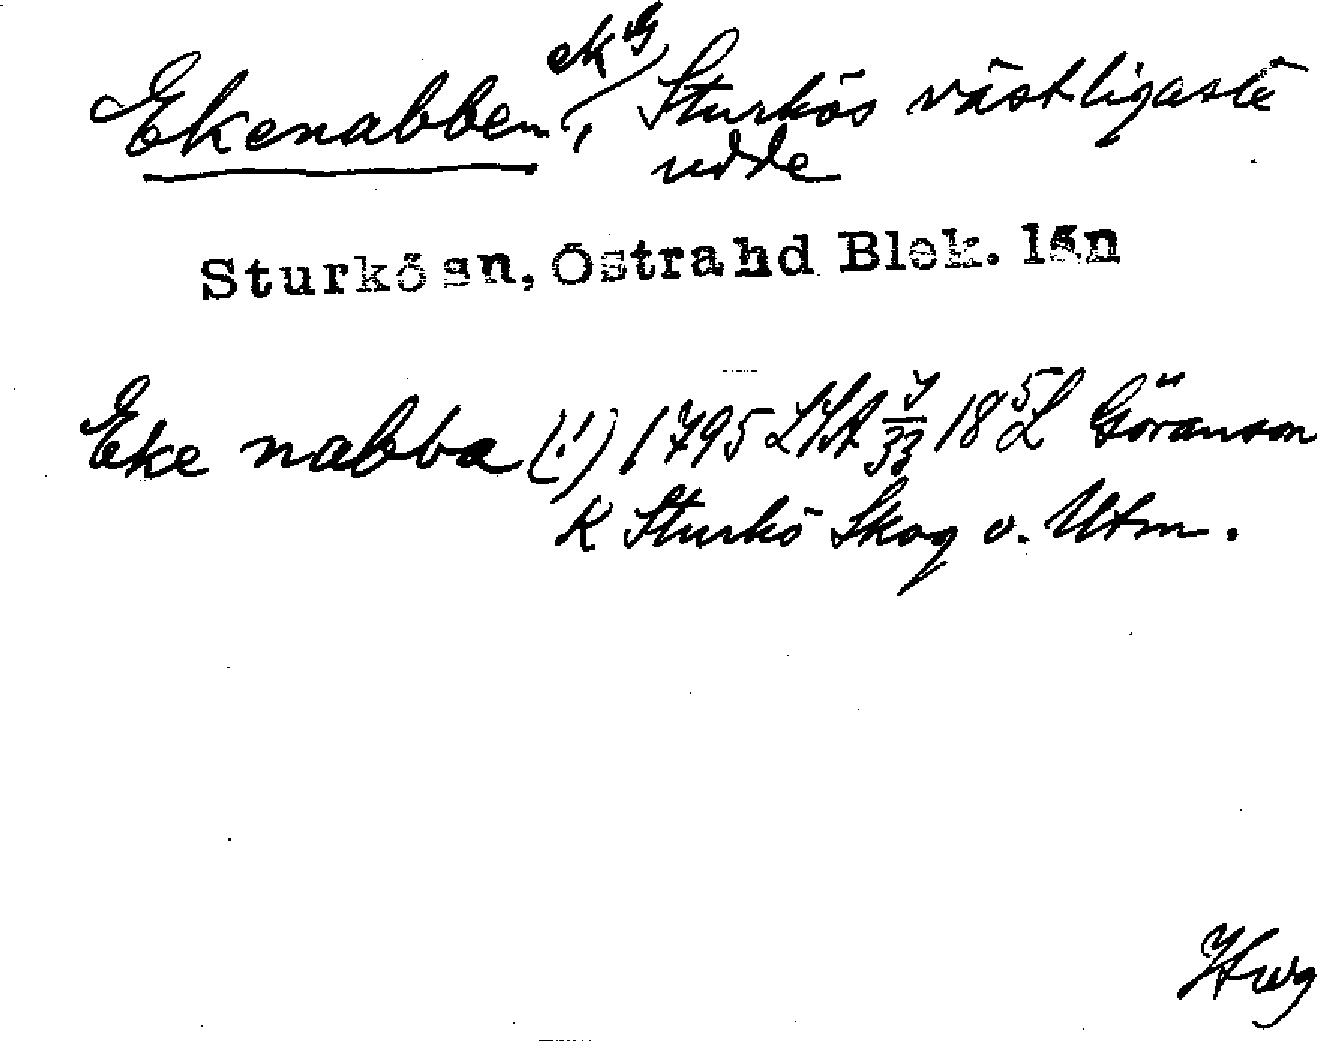 Ekenabben, ek Sturkös västligaste
udde
Sturkö sn, Östra hd Blek. län
Eke nabba (!) 1795 LSA 18 L Göranson
K Sturkö Skog o. Utm.